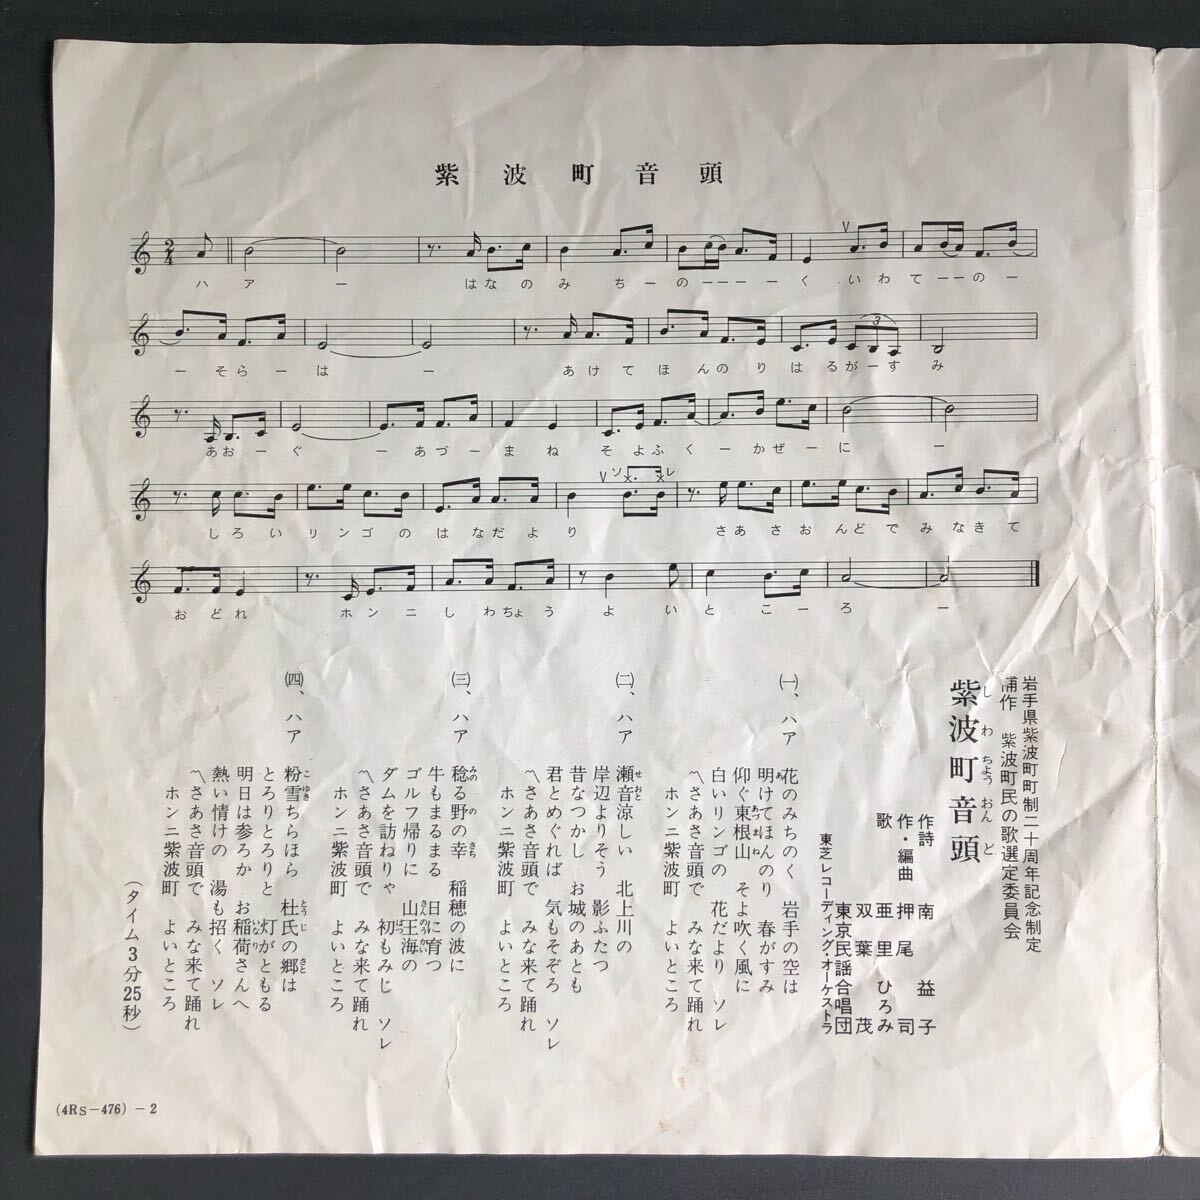 紫波町音頭
ハ ア ー はなのみちーのーーーくいわてーーのー
ーそらーは ー あけてほんのりはるがーすみ
あおーぐ ーあづーまねそよふくーかぜーに ー
V ソレ
しろいリンゴのはなだより さあさおんどでみなきて
おどれ ホンニしわちょうよいとこーろ ー
岩手県紫波町町制二十周年記念制定
紫波町民の歌選定委員会
紫波町音頭
しわちょうおんど
作詩 南 益子
作・編曲 押尾 司
歌 亜里 ひろみ
双葉 茂
東京民謡合唱団
東芝レコーディング・オーケストラ
㈠、ハア 花のみちのく 岩手の空は
明けてほんのり 春がすみ
仰ぐ東根山 そよ吹く風に
白いリンゴの 花だより ソレ
〽さあさ音頭で みな来て踊れ
ホンニ紫波町 よいところ
㈡、ハア 瀬音涼しい 北上川の
岸辺よりそう 影ふたつ
昔なつかし お城のあとも
君とめぐれば 気もそぞろ ソレ
〽さあさ音頭で みな来て踊れ
ホンニ紫波町 よいところ
㈢、ハア 稔る野の幸 稲穂の波に
牛もまるまる 日に育つ
ゴルフ帰りに 山王海の
ダムを訪ねりゃ 初もみじ ソレ
〽さあさ音頭で みな来て踊れ
ホンニ紫波町 よいところ
㈣、ハア 粉雪ちらほら 杜氏の郷は
とろりとろりと 灯がともる
明日は参ろか お稲荷さんへ
熱い情けの 湯も招く ソレ
〽さあさ音頭で みな来て踊れ
ホンニ紫波町 よいところ
(タイム3分25秒)
(4RS-476)-2